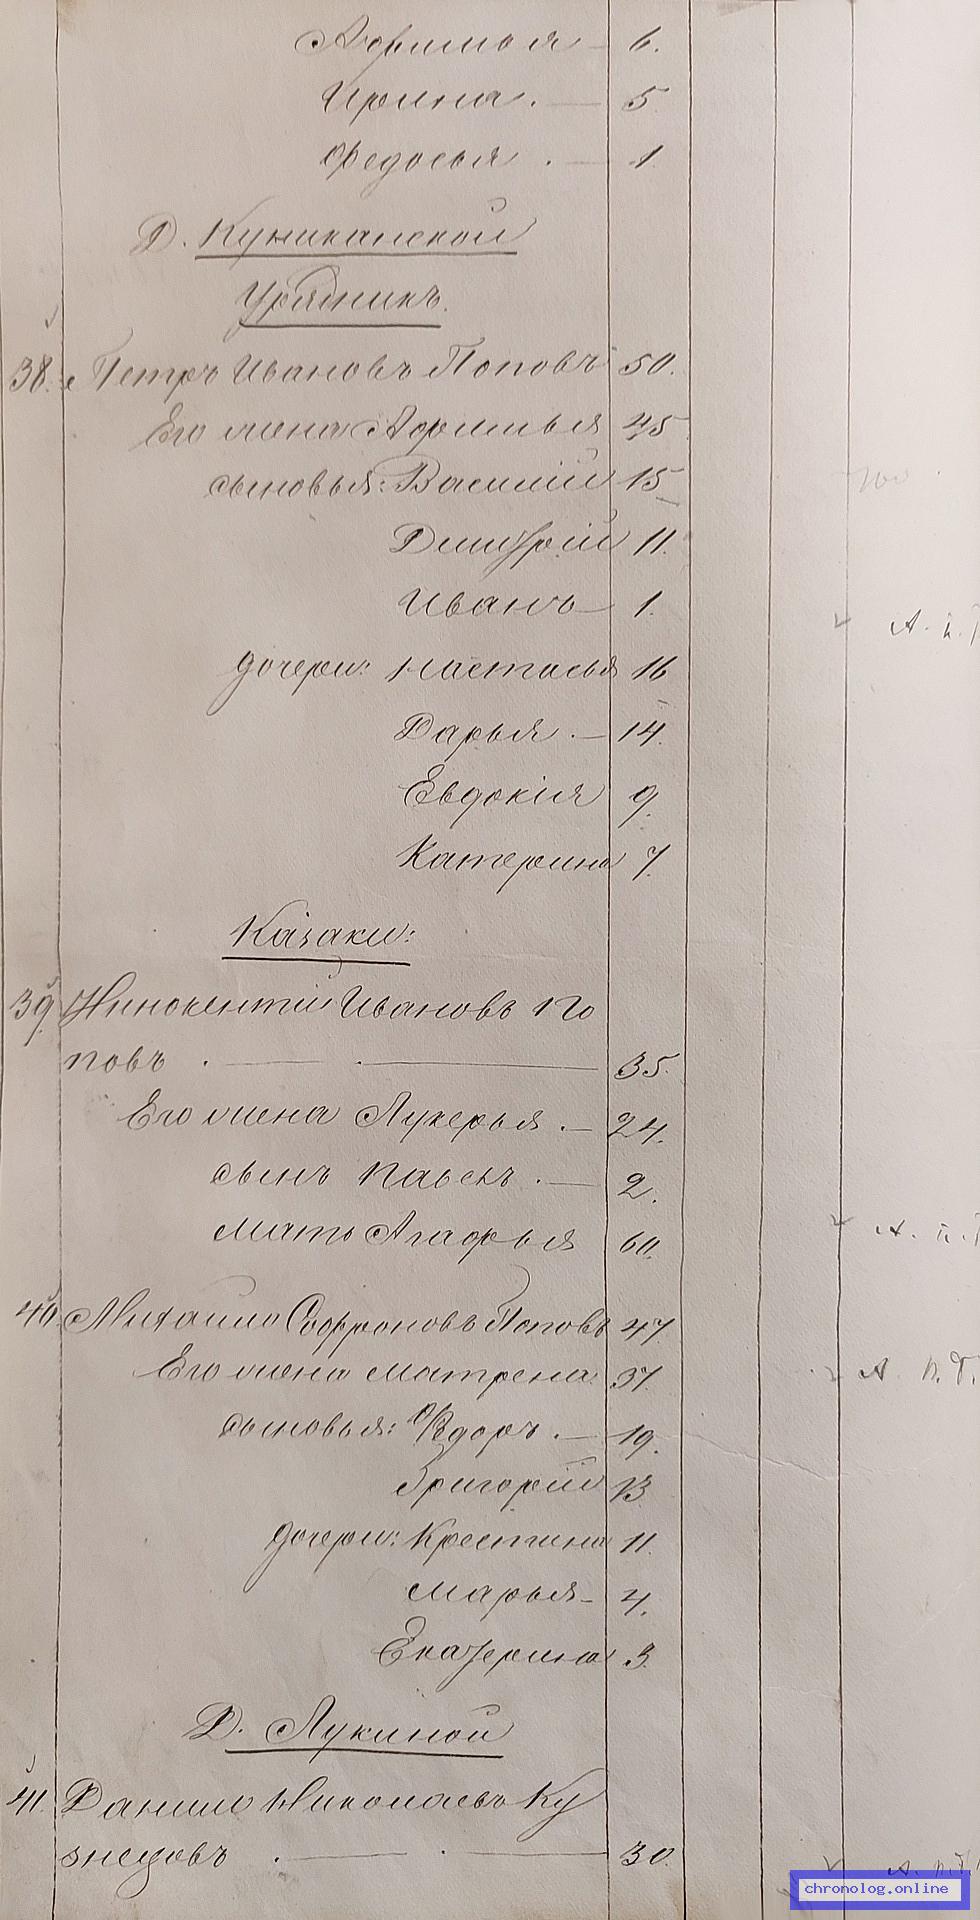 Афимья — 6.
Ирина. — 5
Федосья. — 1.
Д. Куниканской
Урядникъ.
38. Петръ Ивановъ Поповъ 50.
Его жена Афимья 45
сыновья: Василій 15
Дмитрій 11.
Иванъ — 1.
А. п.
дочери: Настасья 16
Дарья. — 14.
Евдокія 9.
Катерина 7.
Казаки:
39. Инокентій Ивановъ По
повъ . — . — 35.
Его жена Лукерья. — 24.
сынъ Павелъ. — 2.
Мать Агафья 60.
А. п.
40. Михайло Софроновъ Поповъ 47.
Его жена Матрена 37.
А. п.
сыновья: Ѳедоръ. — 19.
Григорій 13.
дочери: Крестина 11.
Марья — 4.
Екатерина 3.
Д. Лукиной
41. Данило Николаевъ Ку
знецовъ . — . — 30.
chronolog.online